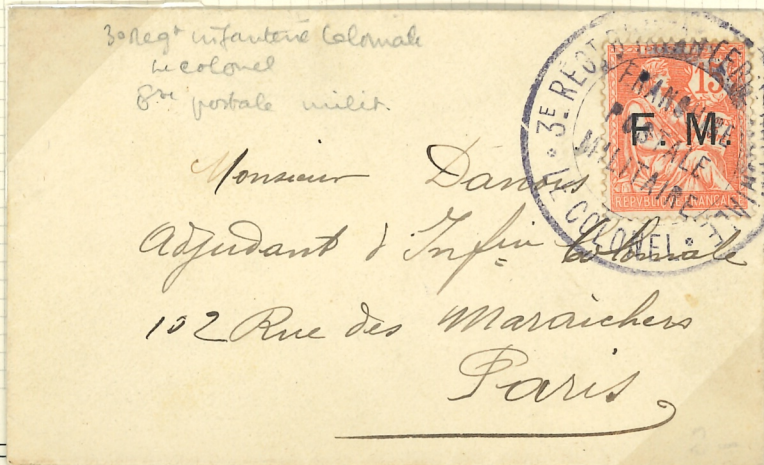 3e Regt infanterie Coloniale
Le colonel
Fse postale milit.
3E REGT D'INFANTERIE
FRANCHISE
POSTALE
MILITAIRE
LE COLONEL
15
F. M.
REPUBLIQUE FRANÇAISE
Monsieur Danois
Adjudant d'Infie Coloniale
102 Rue des Maraichers
Paris